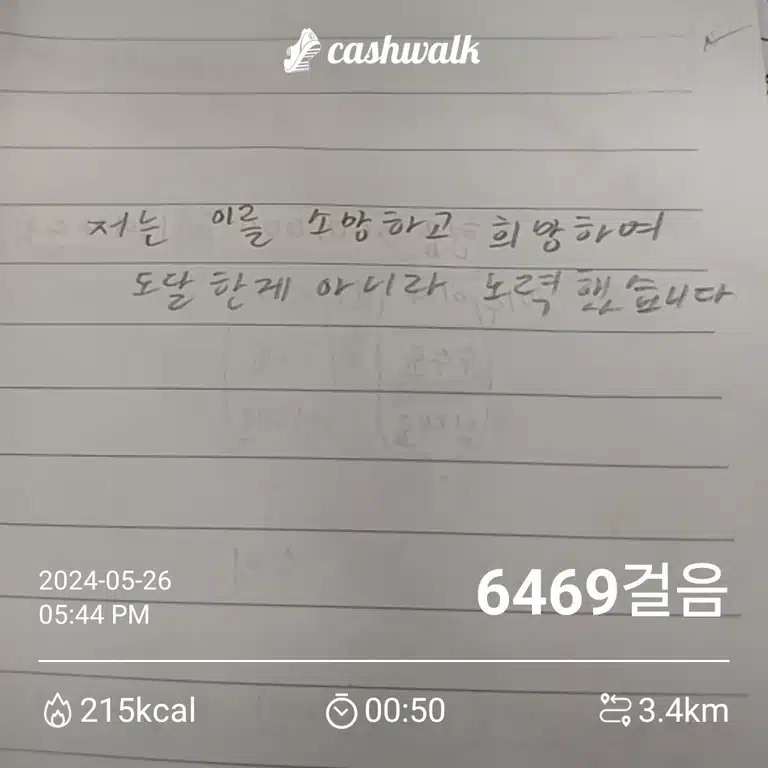 cashwalk
저는 이를 소망하고 희망하여
도달한게 아니라 노력했습니다
2024-05-26
05:44 PM
6469걸음
215kcal
00:50
3.4km